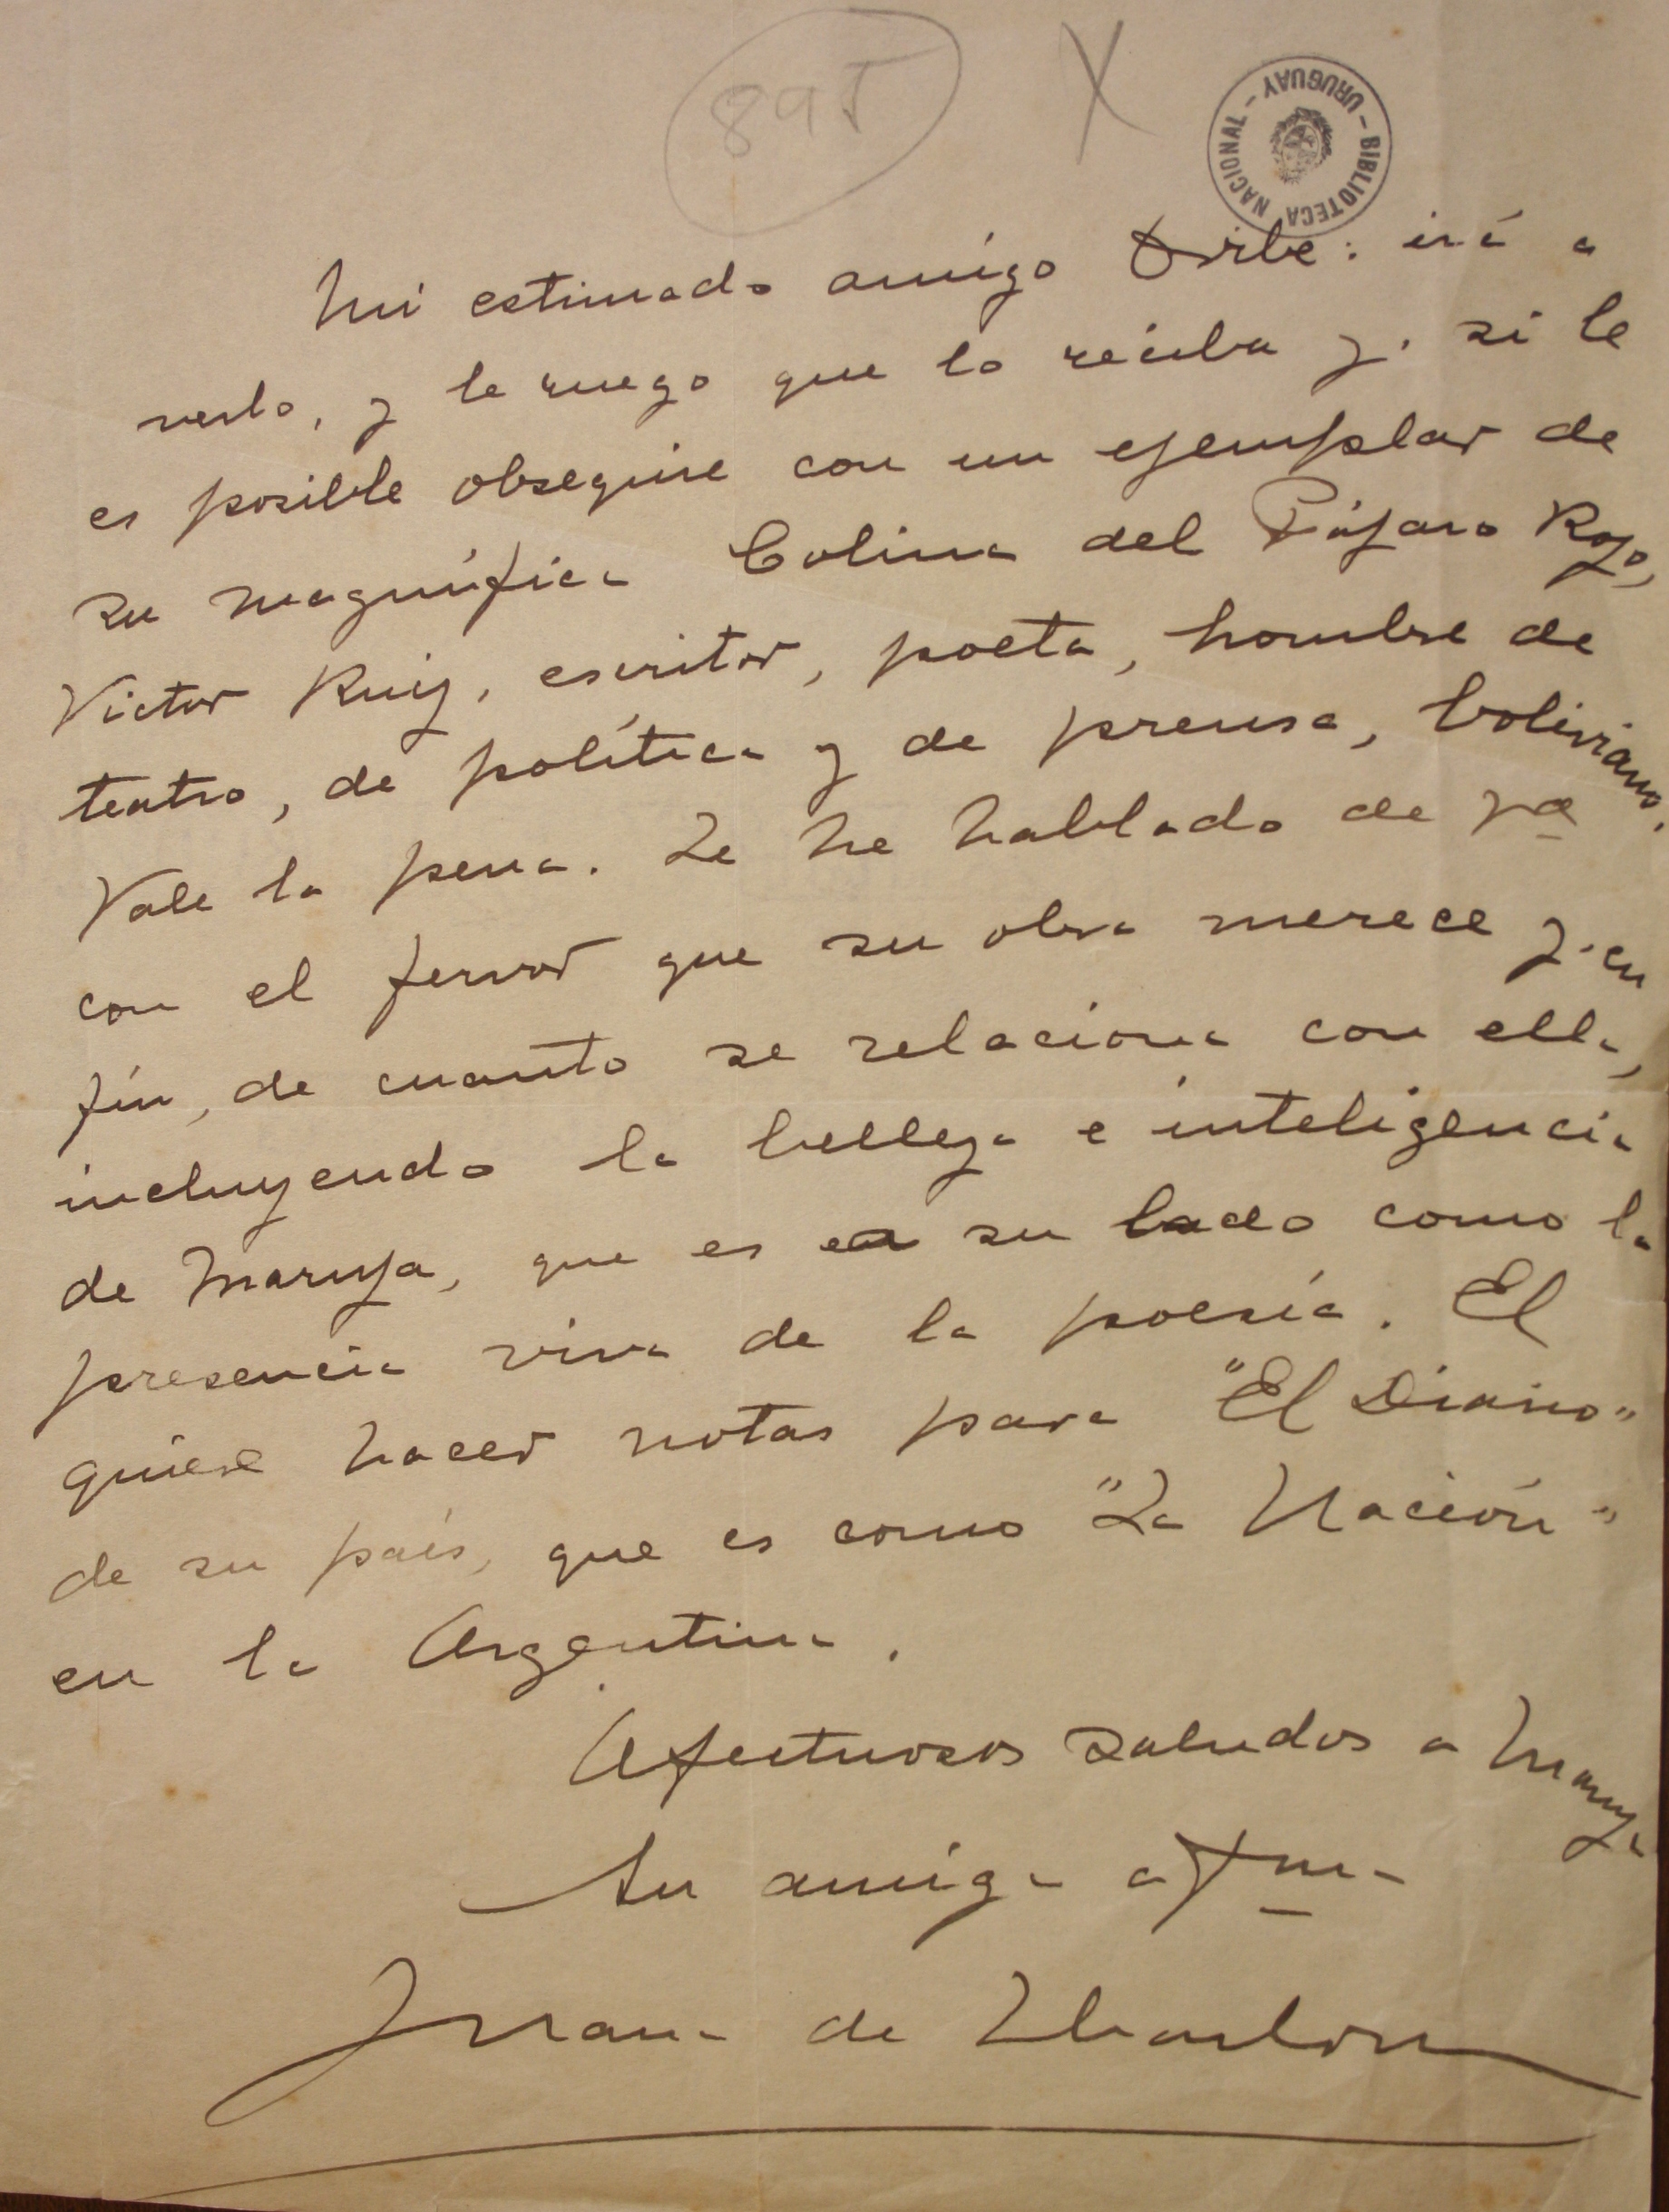 895 X
URUGUAY - BIBLIOTECA NACIONAL -
Mi estimado amigo Oribe: irá a
verlo, y le ruego que lo reciba y. si le
es posible obsequie con un ejemplar de
su magnífica Colina del Pájaro Rojo,
Victor Ruiz, escritor, poeta, hombre de
teatro, de política y de prensa, boliviano.
Vale la pena. Le he hablado de
con el fervor que su obra merece y. en
fín, de cuanto se relaciona con ella,
incluyendo la belleza e inteligencia
de Maruja, que es a su lado como la
presencia viva de la poesía. El
quiere hacer notas para "El Diario"
de su país, que es como "La Nación"
en la Argentina.
Afectuosos saludos a Maruja
Su amiga afma
Juana de Ibarbourou